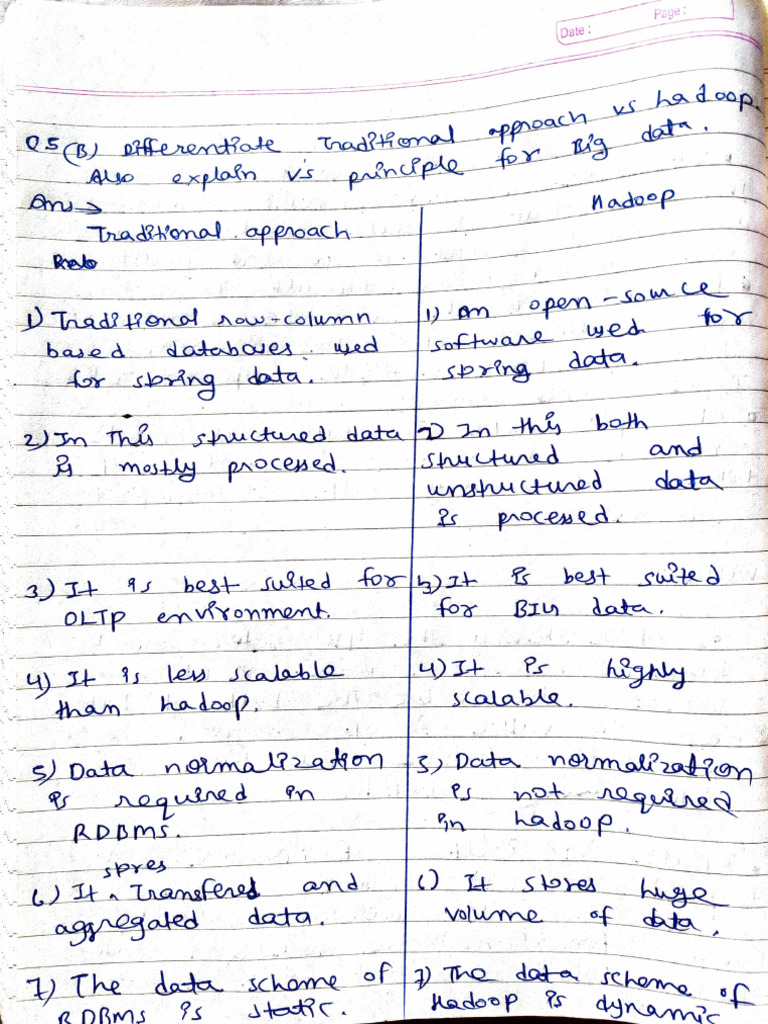 Date :
Page :
Q5 (B) Differentiate Traditional approach vs hadoop.
Also explain V's principle for Big data.
Ans →
Traditional approach
Hadoop
1) Traditional row-column
based databases used
for storing data.
1) An open-source
software used for
storing data.
2) In This structured data
is mostly processed.
2) In this both
structured and
unstructured data
is processed.
3) It is best suited for
OLTP environment.
3) It is best suited
for BIG data.
4) It is less scalable
than hadoop.
4) It is highly
scalable.
5) Data normalization
is required in
RDBMS.
5) Data normalization
is not required
in hadoop.
stores
6) It ^ Transfered and
aggregated data.
6) It stores huge
volume of data.
7) The data scheme of
RDBMS is static.
7) The data scheme of
Hadoop is dynamic